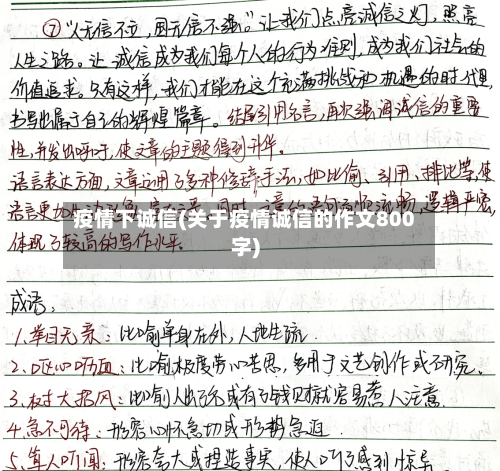 ⑦"人无信不立,国无信不强。"让我们点亮诚信之灯,照亮
人生之路。让诚信成为我们每个人的行为准则,成为我们社会的
价值追求。只有这样,我们才能在这个充满挑战和机遇的时代里,
书写出属于自己的辉煌篇章。结尾引用名言,再次强调诚信的重要
性,并发出呼吁,使文章的主题得到升华。
语言表达方面,文章运用了多种修辞手法,如比喻、引用、排比等,使
语言更加
流畅,逻辑严密,
疫情下诚信(关于疫情诚信的作文800
字)
体现了较高的写作水平。
成语:
1.举目无亲:比喻单身在外,人地生疏.
2.呕心呖血:比喻极度劳心苦思,多用于文艺创作或研究。
3.树大招风:比喻人出名或有了钱财就容易惹人注意.
4.急不可待:形容心怀急切或形势急迫.
5.耸人听闻:形容夸大或捏造事实,使人听了感到惊异